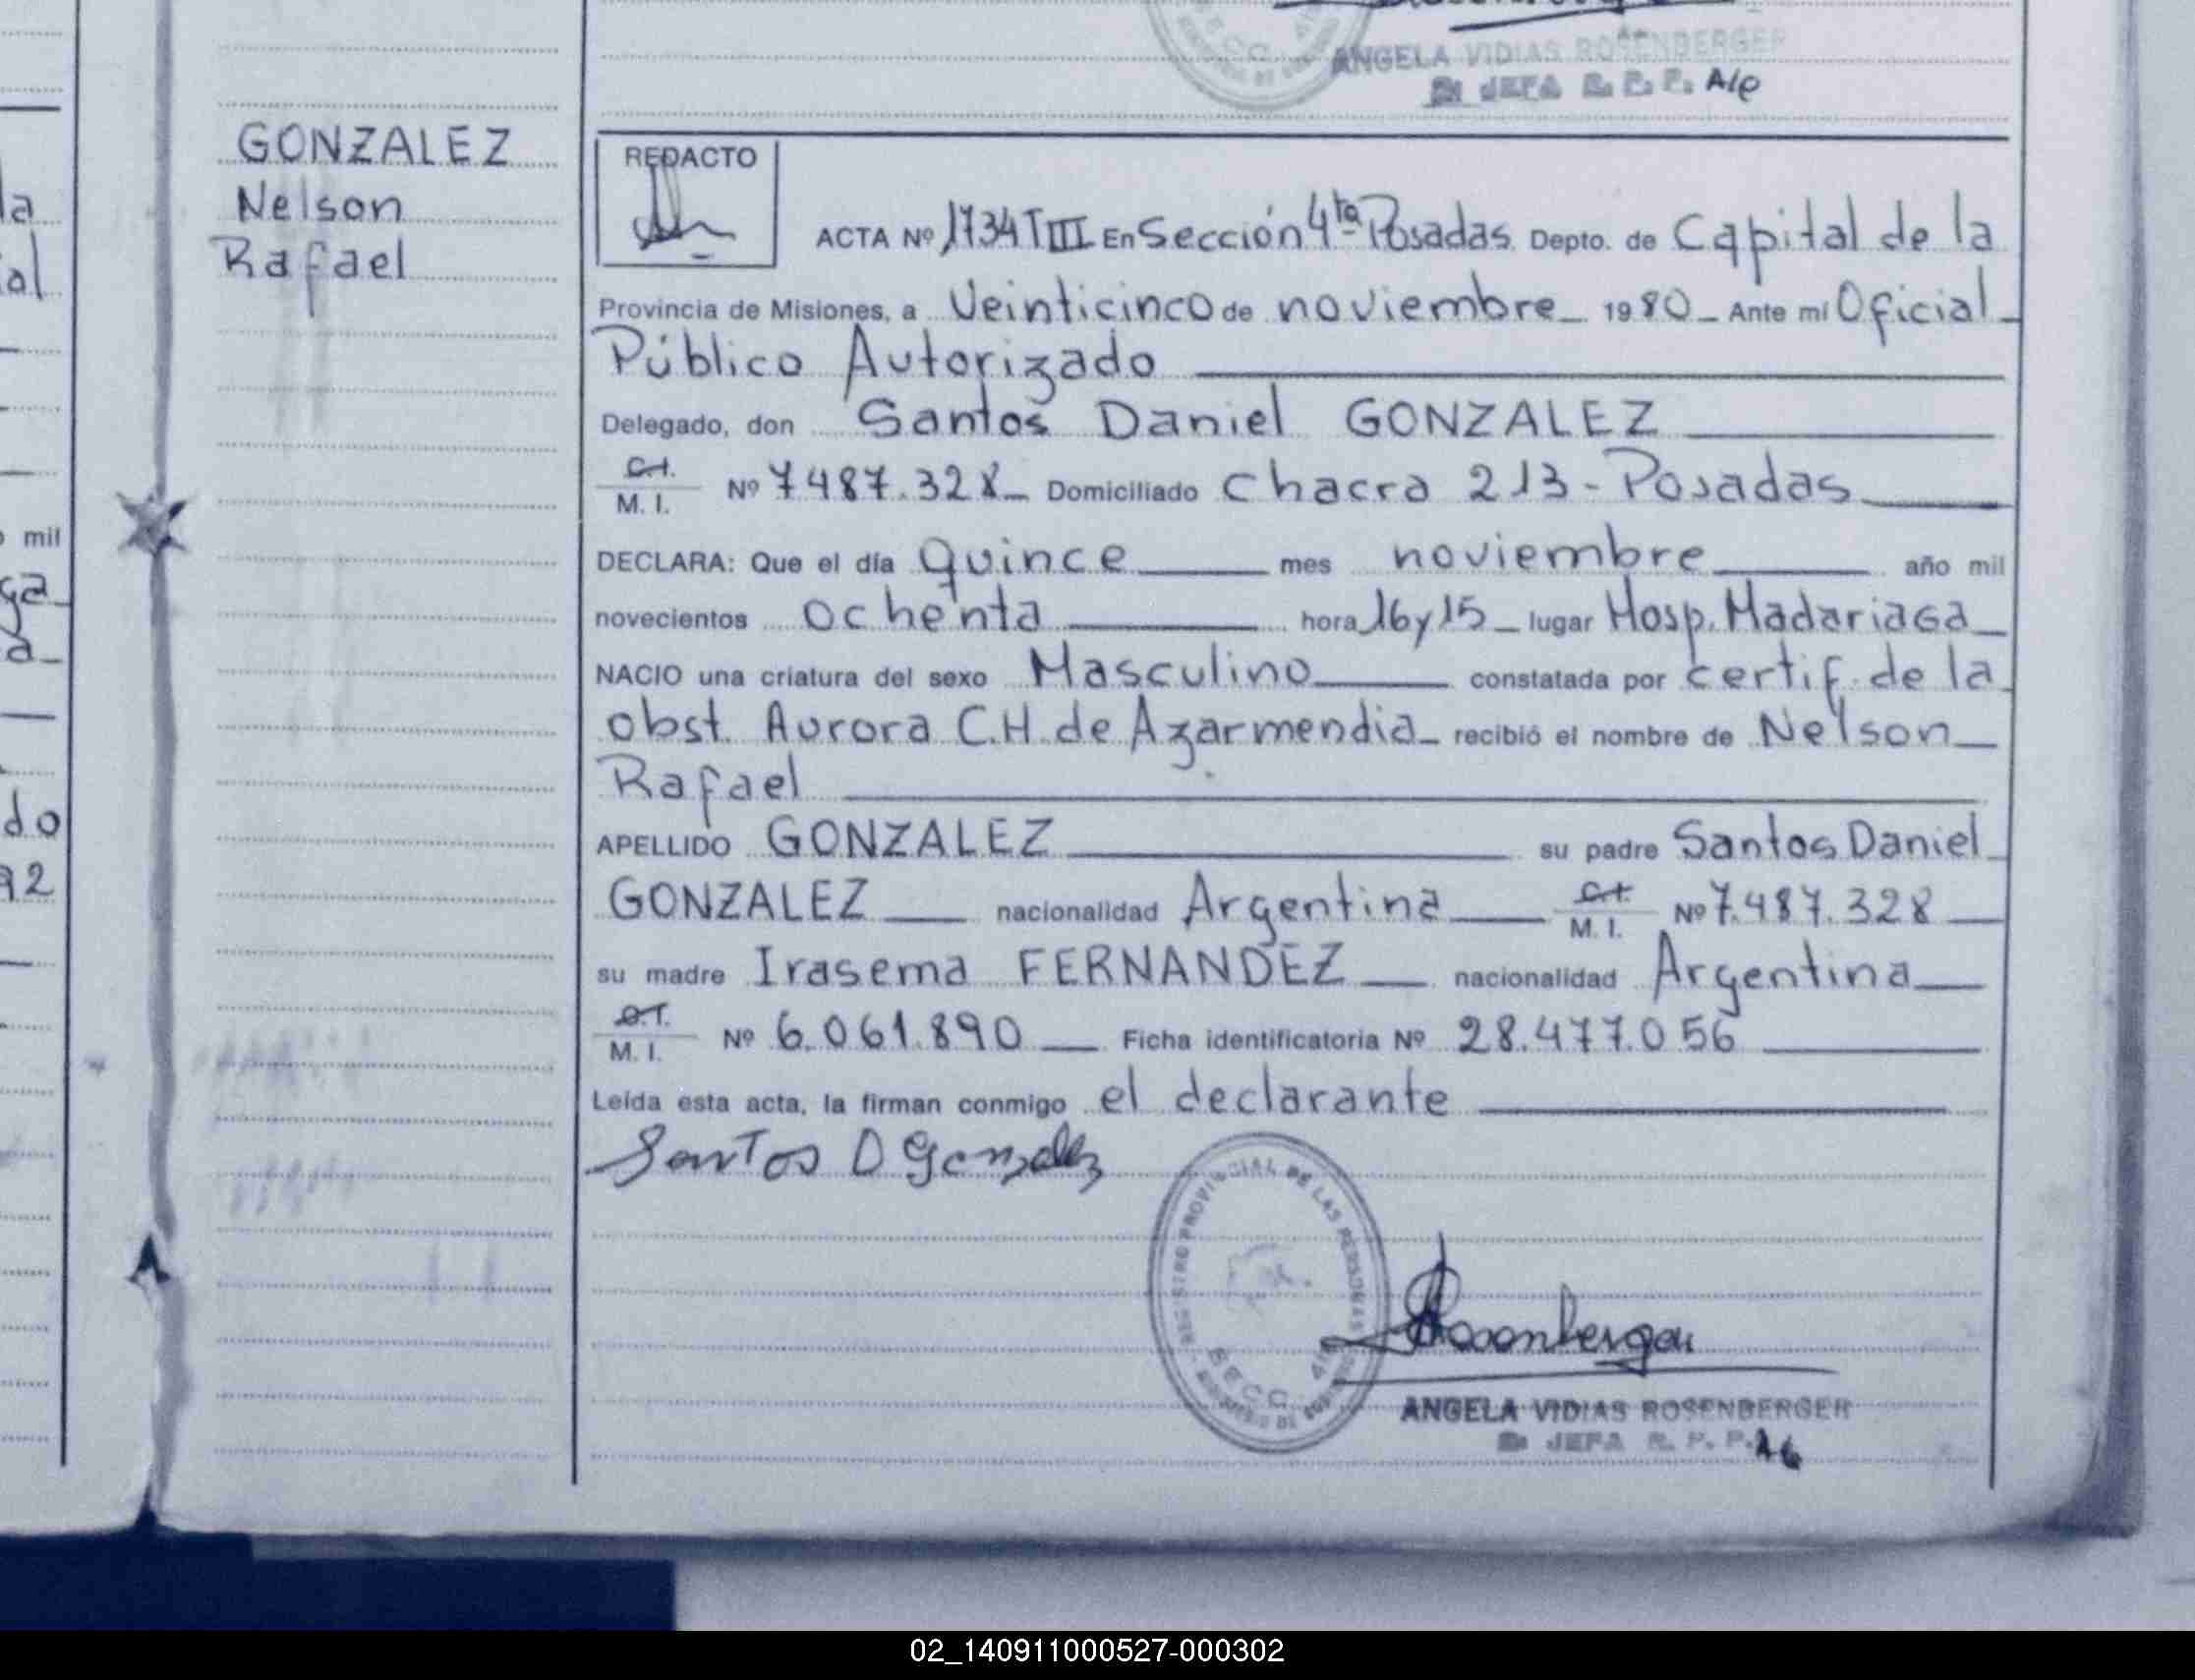 ANGELA VIDIAS ROSENBERGER
JEFA R. P. P. A/c
GONZALEZ
Nelson
Rafael
REDACTO
ACTA Nº 1734 T III En Sección 4ta Posadas Depto. de Capital de la
Provincia de Misiones, a Veinticinco de noviembre 1980 Ante mi Oficial
Público Autorizado
Delegado, don Santos Daniel GONZALEZ
C.I.
M. I. Nº 7487.328 Domiciliado Chacra 213 - Posadas
DECLARA: Que el día Quince mes noviembre año mil
novecientos Ochenta hora 16 y 15 lugar Hosp. Madariaga
NACIO una criatura del sexo Masculino constatada por certif. de la
obst. Aurora C.H. de Azarmendia recibió el nombre de Nelson
Rafael
APELLIDO GONZALEZ su padre Santos Daniel
GONZALEZ nacionalidad Argentina C.I. M. I. Nº 7.487.328
su madre Irasema FERNANDEZ nacionalidad Argentina
M. I. Nº 6.061.890 Ficha identificatoria Nº 28.477.056
Leída esta acta, la firman conmigo el declarante
Santos D Gonzalez
REGISTRO PROVINCIAL DE LAS PERSONAS
SECC. 4ta
Rosenberger
ANGELA VIDIAS ROSENBERGER
JEFA R. P. P.
02_140911000527-000302